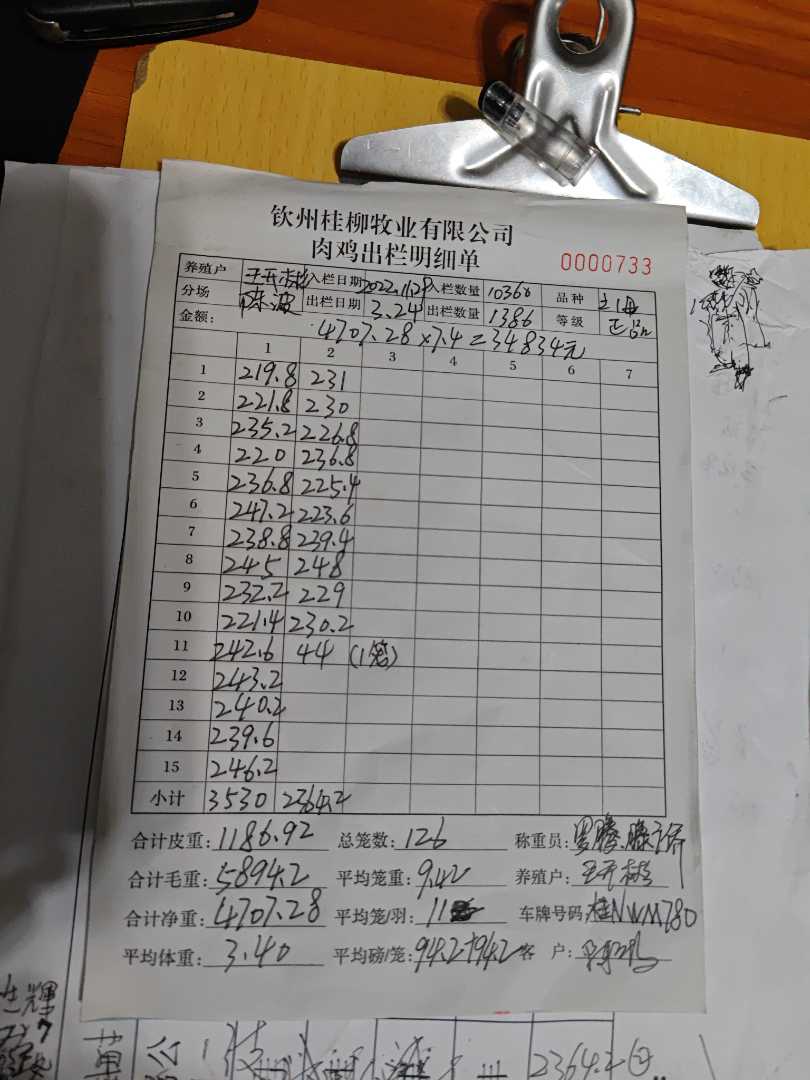 钦州桂柳牧业有限公司
肉鸡出栏明细单 0000733
养殖户 王开彬 入栏日期 2022.11.29 入栏数量 10360 品种 土2母
分场 陈波 出栏日期 3.24 出栏数量 1386 等级 正品
金额: 4707.28×7.4=34834元
1 2 3 4 5 6 7
1 219.8 231
2 221.8 230
3 235.2 226.8
4 220 236.8
5 236.8 225.4
6 247.2 223.6
7 238.8 239.4
8 245 248
9 232.2 229
10 221.4 230.2
11 242.6 44 (1笼)
12 243.2
13 240.2
14 239.6
15 246.2
小计 3530 2364.2
合计皮重: 1186.92 总笼数: 126 称重员:
合计毛重: 5894.2 平均笼重: 9.42 养殖户: 王开彬
合计净重: 4707.28 平均笼/羽: 11 车牌号码: 桂NWM780
平均体重: 3.40 平均磅/笼: 94.2+94.2 客 户:
2364.2